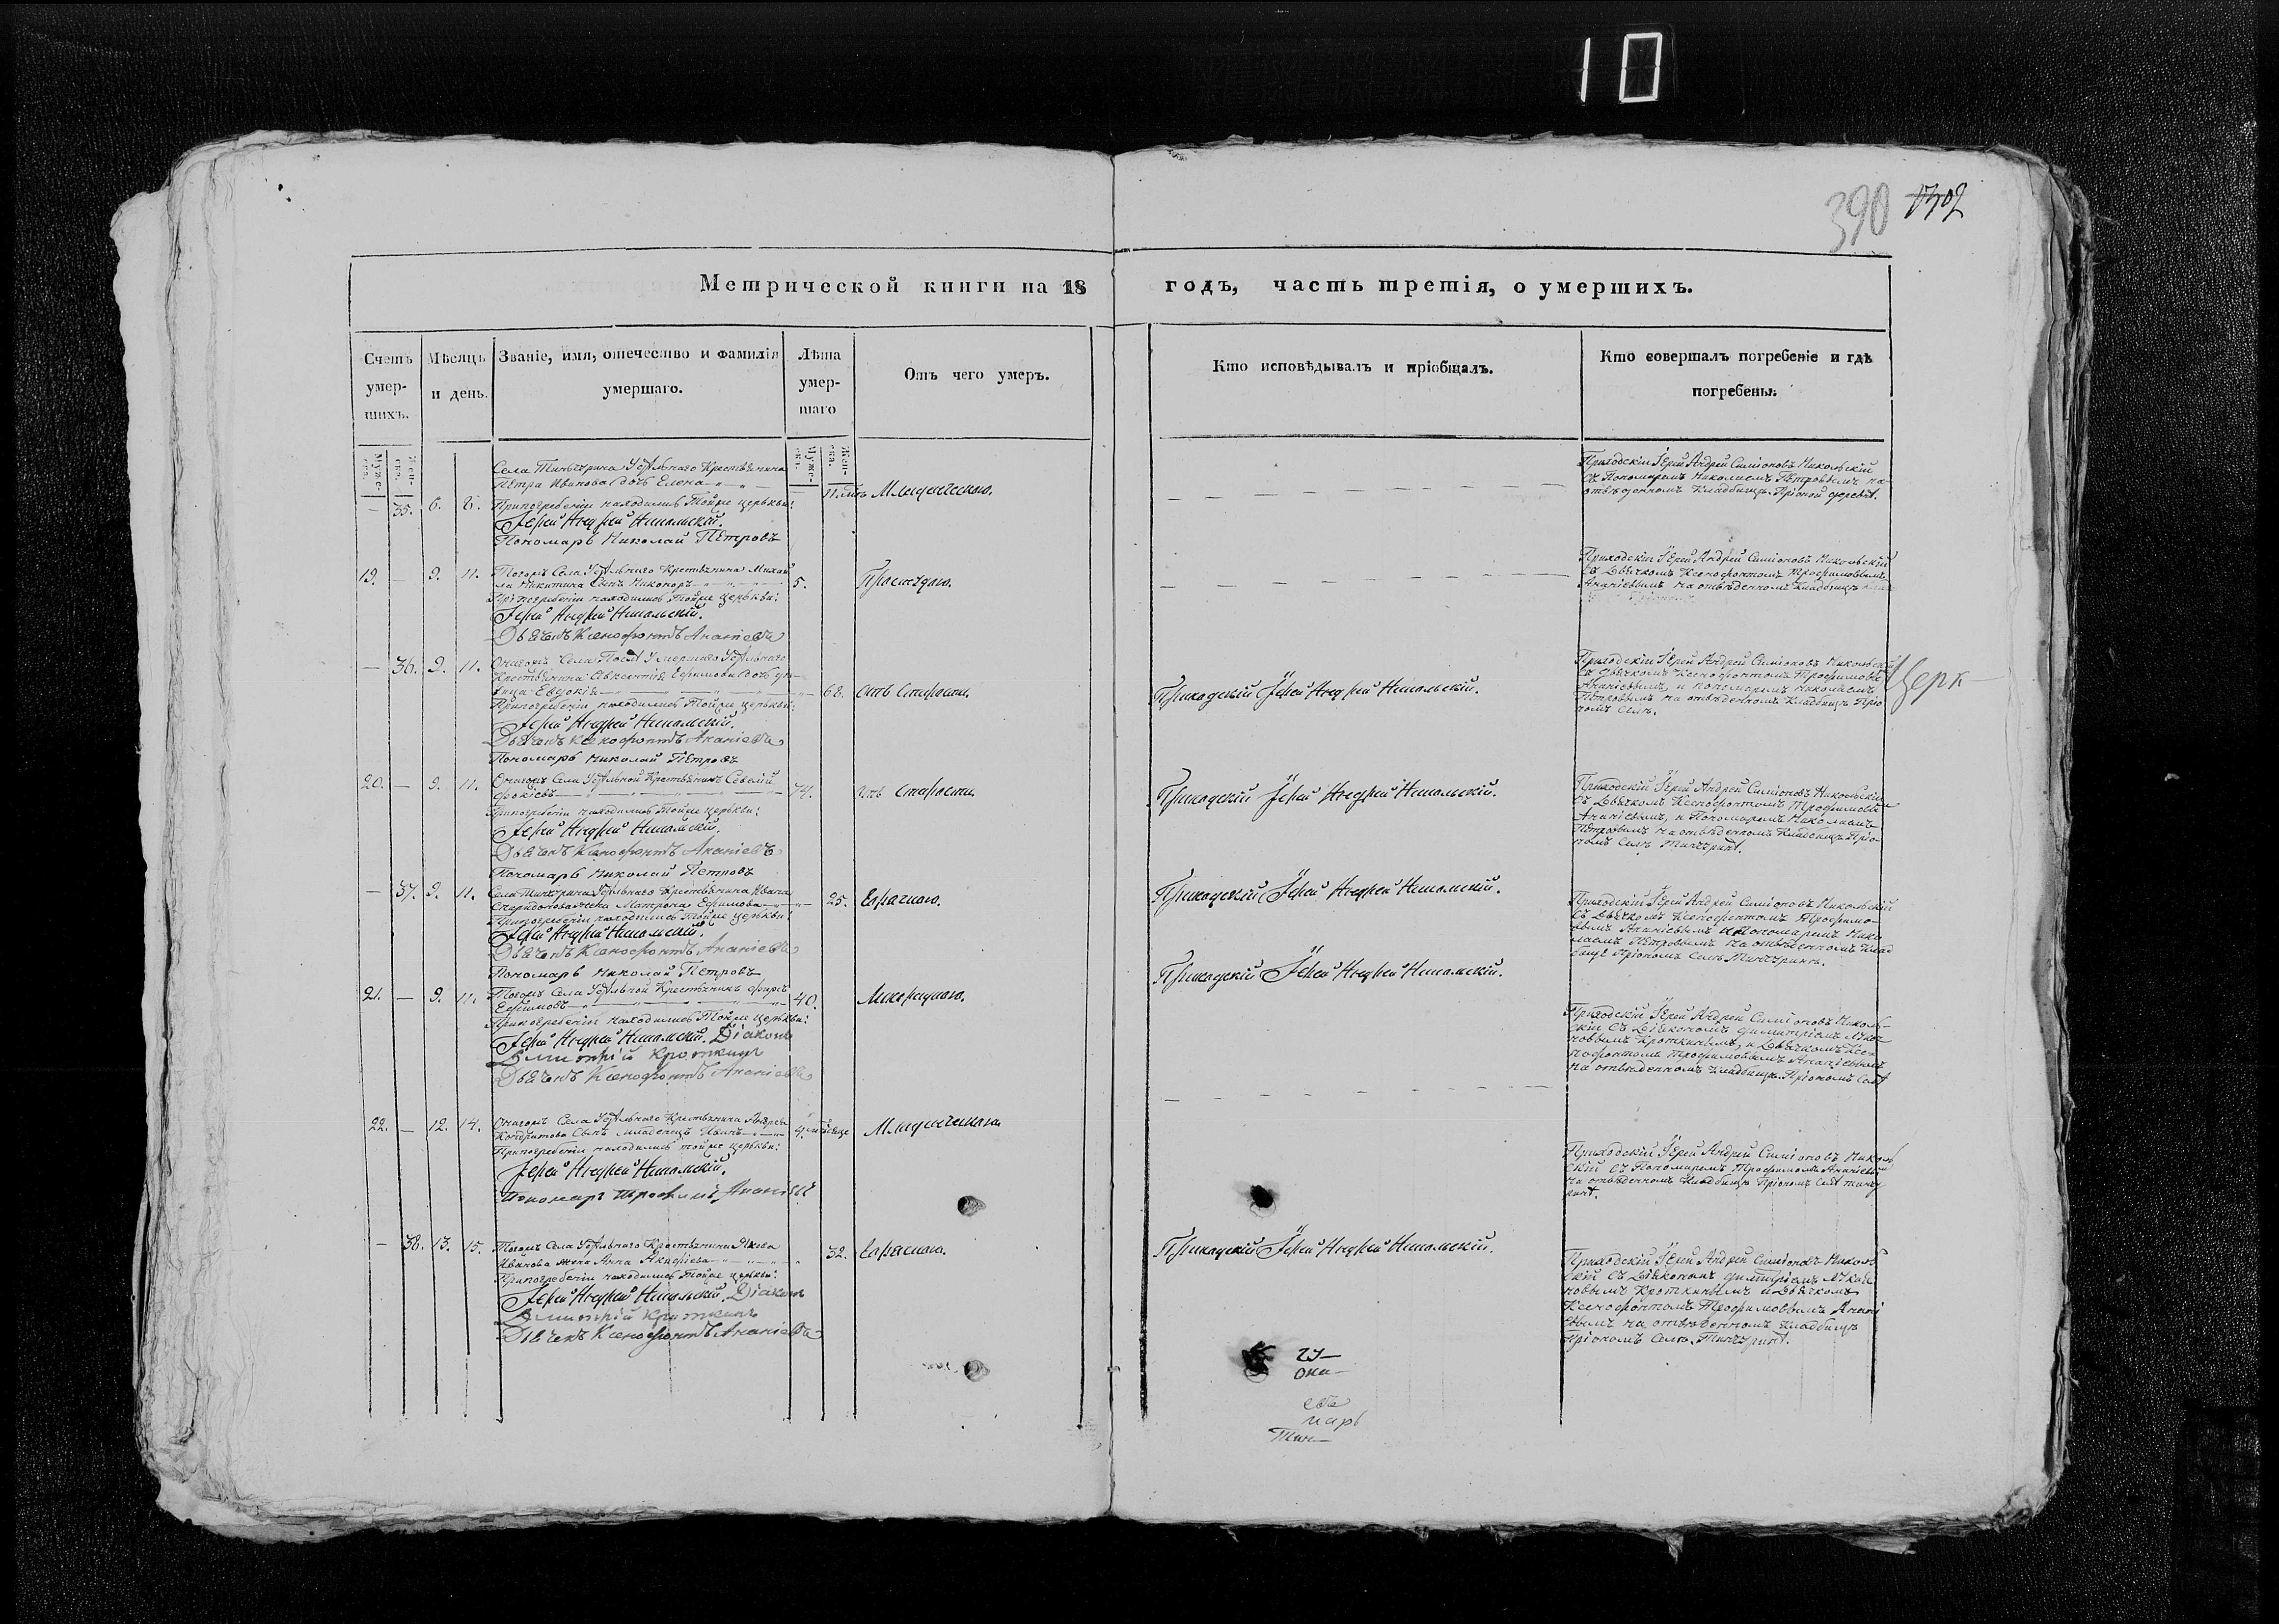 10
390 1302
Метрической книги на 18 годъ, часть третія, о умершихъ.
Счетъ умер-шихъ.
Мѣсяцъ и день.
Званіе, имя, отечество и фамилія умершаго.
Лѣта умер-шаго
Отъ чего умеръ.
Кто исповѣдывалъ и пріобщалъ.
Кто совершалъ погребеніе и гдѣ погребены.
Муже-ска. Жен-ска.
Муже-ска. Жен-ска.
Села Тинчурина Удѣльнаго Крестьянина
Петра Иванова дочь Елена
— 35. 6. 8. Припогребеніи находились Тойже церькви:
Іерей Андрей Никольскій.
Пономарь Николай Петровъ
Младенческою.
Приходскій Іерей Андрей Симіоновъ Никольскій
съ Пономаремъ Николаемъ Петровымъ на
отведенномъ Кладбищѣ
19. — 9. 11. Тогожъ Села Удѣльнаго Крестьянина Михай
ла Никитина сынъ Никоноръ 5.
Припогребеніи находились Тойже церькви:
Іерей Андрей Никольскій.
Дьячекъ Ксенофонтъ Ананіевъ
Приходскій Іерей Андрей Симіоновъ Никольскій
съ Дьячкомъ Ксенофонтомъ Трофимовымъ
Ананіевымъ на отведенномъ Кладбищѣ
— 36. 9. 11. Онагожъ Села Послѣ Умершаго Удѣльнаго
Крестьянина Авксентія Ефимова
вица Евдокія 68.
Припогребеніи находились Тойже церькви:
Іерей Андрей Никольскій.
Дьячекъ Ксенофонтъ Ананіевъ
Пономарь Николай Петровъ
отъ Старости.
Приходскій Іерей Андрей Никольскій.
Приходскій Іерей Андрей Симіоновъ Никольскій
съ Дьячкомъ Ксенофонтомъ Трофимовымъ
Ананіевымъ, и пономаремъ Николаемъ
Петровымъ на отведенномъ Кладбищѣ Прио
номъ Селѣ.
Церк
20. — 9. 11. Онагожъ Села Удѣльной Крестьянинъ
Фокіевъ 74.
Припогребеніи находились Тойже церькви:
Іерей Андрей Никольскій.
Дьячекъ Ксенофонтъ Ананіевъ
Пономарь Николай Петровъ
отъ Старости.
Приходскій Іерей Андрей Никольскій.
Приходскій Іерей Андрей Симіоновъ Никольскій
съ Дьячкомъ Ксенофонтомъ Трофимовымъ
Ананіевымъ, и Пономаремъ Николаемъ
Петровымъ на отведенномъ Кладбищѣ Прио
номъ Селѣ Тинчуринѣ.
— 37. 9. 11. Села Тинчурина Удѣльнаго Крестьянина Ивана
Спиридонова жена Матрона Ефимова 25.
Припогребеніи находились Тойже церькви:
Іерей Андрей Никольскій.
Дьячекъ Ксенофонтъ Ананіевъ
Пономарь Николай Петровъ
Горячкою.
Приходскій Іерей Андрей Никольскій.
Приходскій Іерей Андрей Симіоновъ Никольскій
съ Дьячкомъ Ксенофонтомъ Трофимо-
вымъ Ананіевымъ и Пономаремъ Нико
лаемъ Петровымъ на отведенномъ Клад
бищѣ Приономъ Селѣ Тинчуринѣ.
21. — 9. 11. Тогожъ Села Удѣльной Крестьянинъ
Ефимовъ 40.
Припогребеніи находились Тойже церькви:
Іерей Андрей Никольскій. Діаконъ
Димитрій Кроткинъ
Дьячекъ Ксенофонтъ Ананіевъ
Лихорадкою.
Приходскій Іерей Андрей Никольскій.
Приходскій Іерей Андрей Симіоновъ Николь-
скій съ Діакономъ Димитріемъ
новымъ Кроткинымъ, и Дьячкомъ Ксе-
нофонтомъ Трофимовымъ Ананіевымъ
на отведенномъ Кладбищѣ Приономъ Селѣ
22. — 12. 14. Онагожъ Села Удѣльнаго Крестьянина Андрея
Кондратова Сынъ младенецъ Иванъ
Припогребеніи находились тойже церькви:
Іерей Андрей Никольскій.
Пономарь Трофимъ Ананіевъ
Младенческою.
Приходскій Іерей Андрей Симіоновъ Николь
скій съ Пономаремъ Трофимомъ Ананіевымъ
на отведенномъ Кладбищѣ Приономъ Селѣ Тинчу
ринѣ.
— 38. 13. 15. Тогожъ Села Удѣльнаго Крестьянина Якова
Иванова жена Анна 32.
Припогребеніи находились Тойже церькви:
Іерей Андрей Никольскій. Діаконъ
Димитрій Кроткинъ
Дьячекъ Ксенофонтъ Ананіевъ
Горячкою.
Приходскій Іерей Андрей Никольскій.
Приходскій Іерей Андрей Симіоновъ Николь
скій съ Діакономъ Димитріемъ
новымъ Кроткинымъ и Дьячкомъ
Ксенофонтомъ Трофимовымъ Анані
евымъ на отведенномъ Кладбищѣ
Приономъ Селѣ Тинчуринѣ.
евъ
марь
Тин